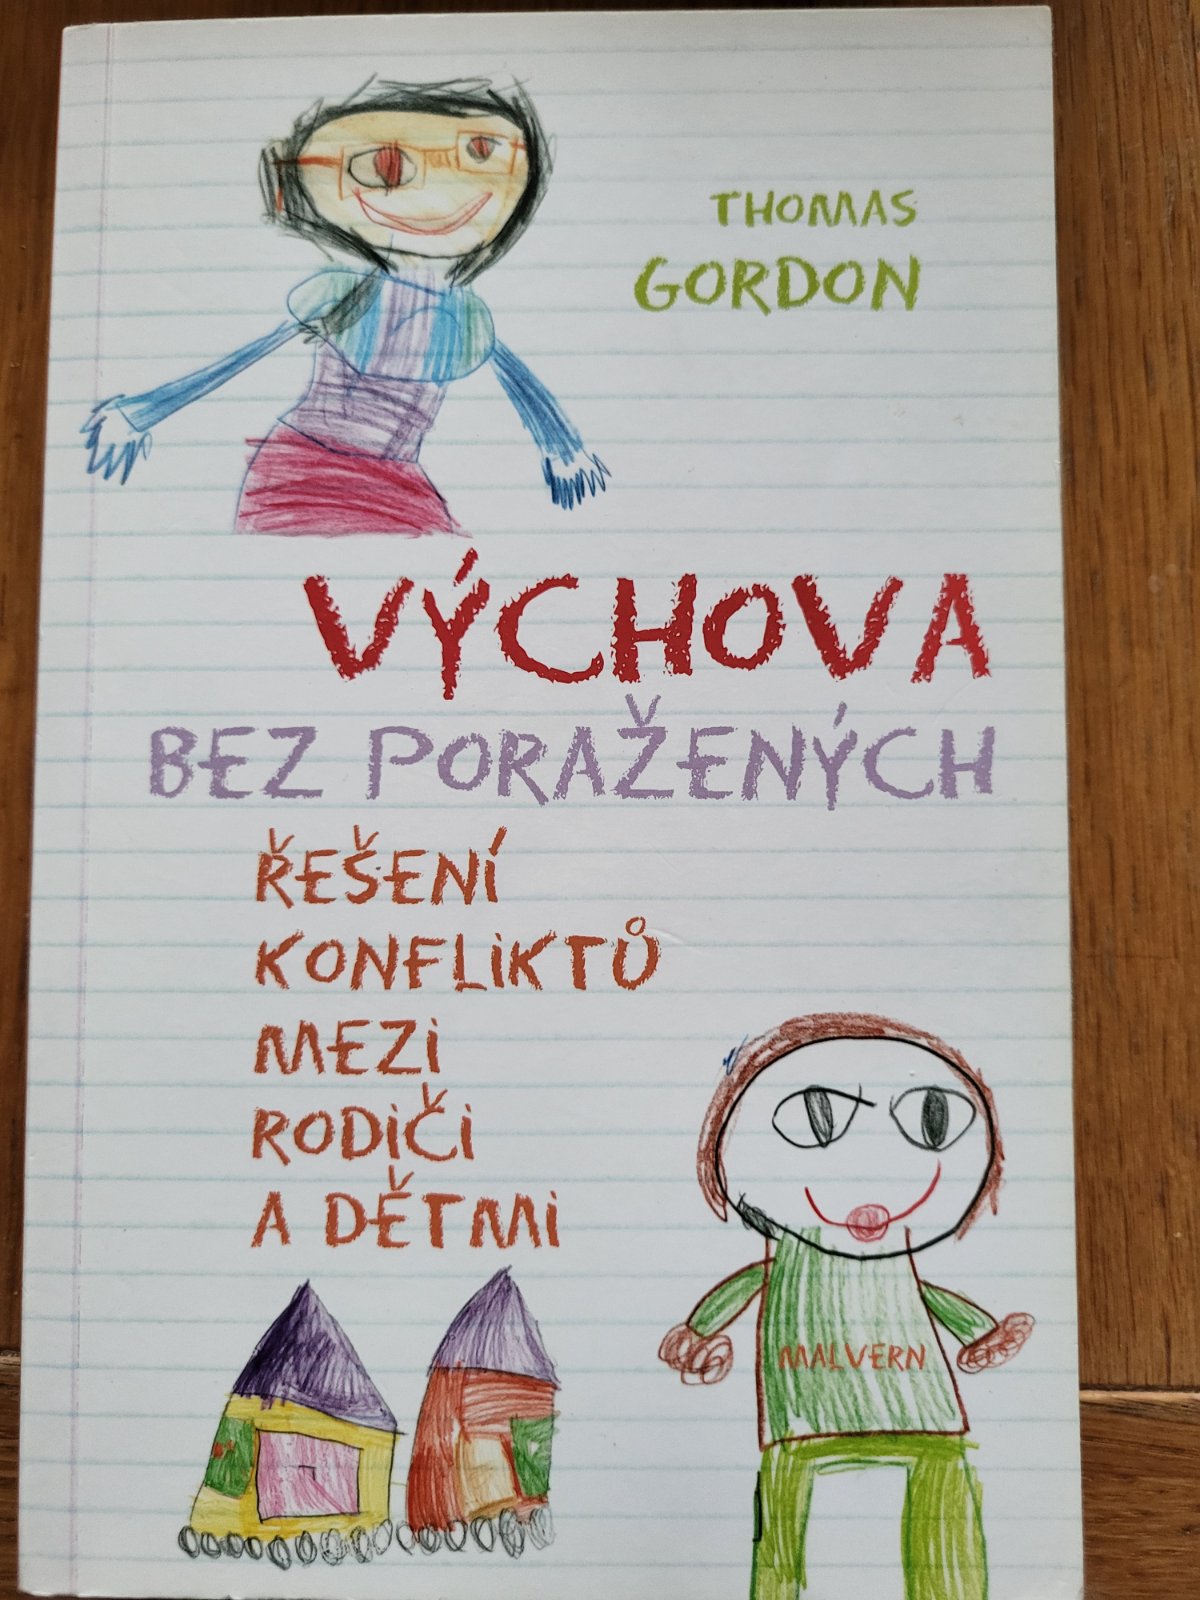 THOMAS
GORDON
VÝCHOVA
BEZ PORAŽENÝCH
ŘEŠENÍ
KONFLIKTŮ
MEZI
RODIČI
A DĚTMI
MALVERN